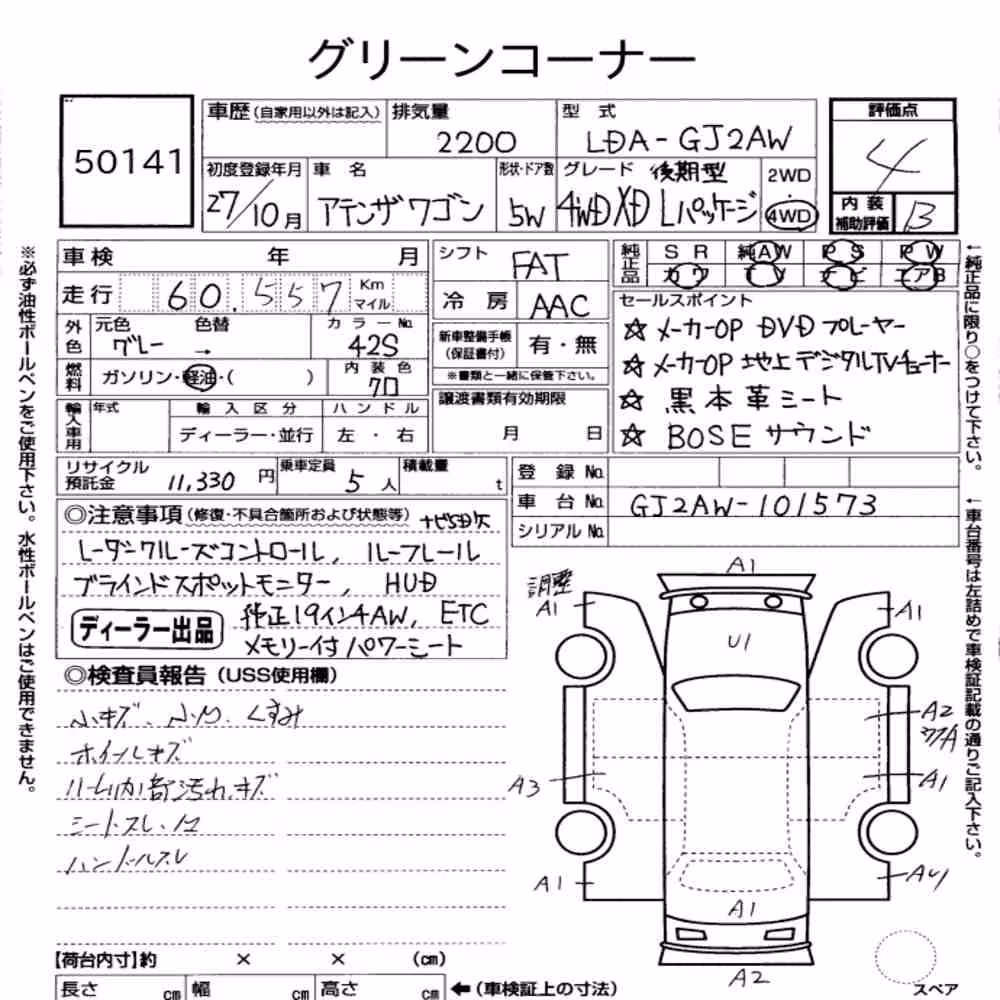 グリーンコーナー
50141
車歴(自家用以外は記入) 排気量 2200 型 式 LDA-GJ2AW
評価点 4
初度登録年月 27/10月 車 名 アテンザワゴン 形状・ドア数 5W グレード 後期型 4WD XD Lパッケージ 2WD・4WD
内装補助評価 B
車検 年 月
シフト FAT
純正品 SR 純AW PS PW
カワ TV ナビ エアB
走行 60,557 Km マイル
冷房 AAC
セールスポイント
☆メーカーOP DVDプレーヤー
☆メーカーOP 地上デジタルTVチューナー
☆ 黒本革シート
☆ BOSEサウンド
外色 元色 グレー → 色替 カラーNo. 42S
新車整備手帳(保証書付) 有・無
※書類と一緒に保管下さい。
燃料 ガソリン・軽油・( ) 内装色 クロ
譲渡書類有効期限 月 日
輸入車用 年式 輸入区分 ハンドル
ディーラー・並行 左・右
リサイクル預託金 11,330 円 乗車定員 5 人 積載量 t
登録No.
車台No. GJ2AW-101573
シリアルNo.
◎注意事項(修復・不具合箇所および状態等) ナビSD欠
レーダークルーズコントロール, ルーフレール
ブラインドスポットモニター, HUD
ディーラー出品
純正19インチAW, ETC
メモリー付パワーシート
◎検査員報告(USS使用欄)
小キズ、小凹、くすみ
ホイールキズ
ルーム内部汚れ、キズ
シートスレ・凹
ハンドルスレ
※必ず油性ボールペンをご使用下さい。水性ボールペンはご使用できません。
←純正品に限り○をつけて下さい。
←車台番号は左詰めで車検証記載の通りご記入下さい。
A1
調整
A1
A1
U1
A2
A3
A1
A1
A1
A2
スペア
【荷台内寸】約 × × (cm)
長さ cm 幅 cm 高さ cm ←(車検証上の寸法)